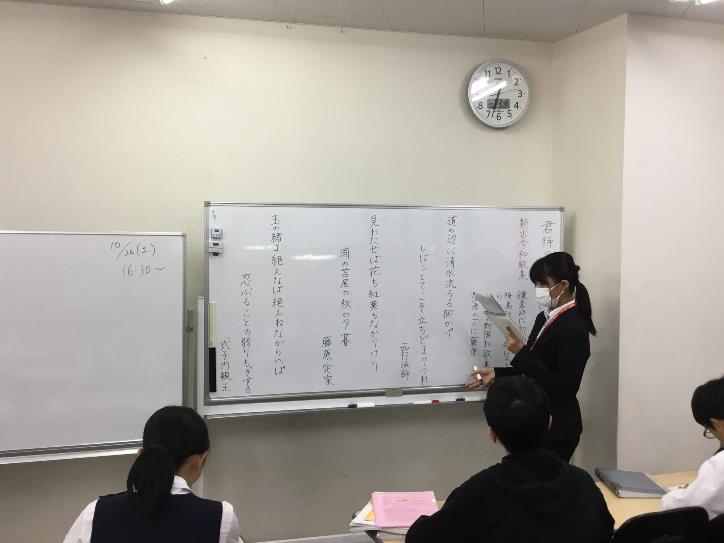 君待
新古今和歌集
鎌倉時代
道の辺に清水流るる柳かげ
しばしとてこそ立ちどまりつれ
西行法師
見わたせば花も紅葉もなかりけり
浦の苫屋の秋の夕暮
藤原定家
玉の緒よ絶えなば絶えねながらへば
忍ぶることの弱りもぞする
式子内親王
10/26(土)
16:30~